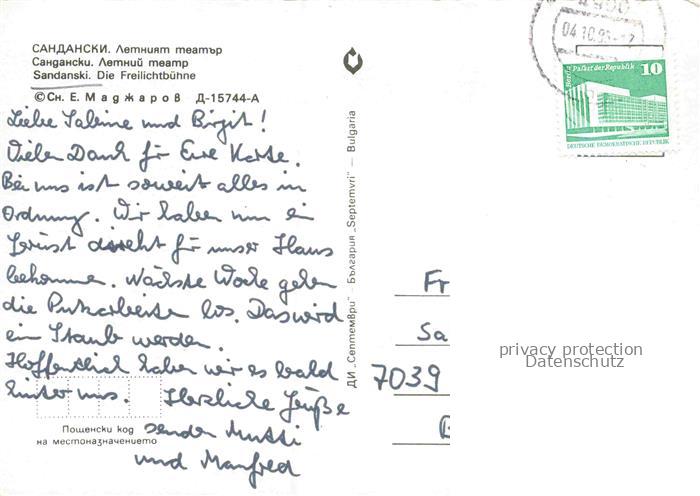 САНДАНСКИ. Летният театър
Сандански. Летний театр
Sandanski. Die Freilichtbühne
©Сн. Е. Маджаров Д-15744-А
Liebe Sabine und Birgit!
Vielen Dank für Eure Karte.
Bei uns ist soweit alles in
Ordnung. Wir haben nun ein
Gerüst direkt für unser Haus
bekommen. Nächste Woche gehen
die Putzarbeiten los. Das wird
ein Staub werden.
Hoffentlich haben wir es bald
hinter uns. Herzliche Grüße
senden Mutti
und Manfred
Пощенски код
на местоназначението
ДИ „Септември" – България „Septemvri" – Bulgaria
04.10.90
Berlin Palast der Republik 10
DEUTSCHE DEMOKRATISCHE REPUBLIK
Fr
Sa
7039
privacy protection
Datenschutz